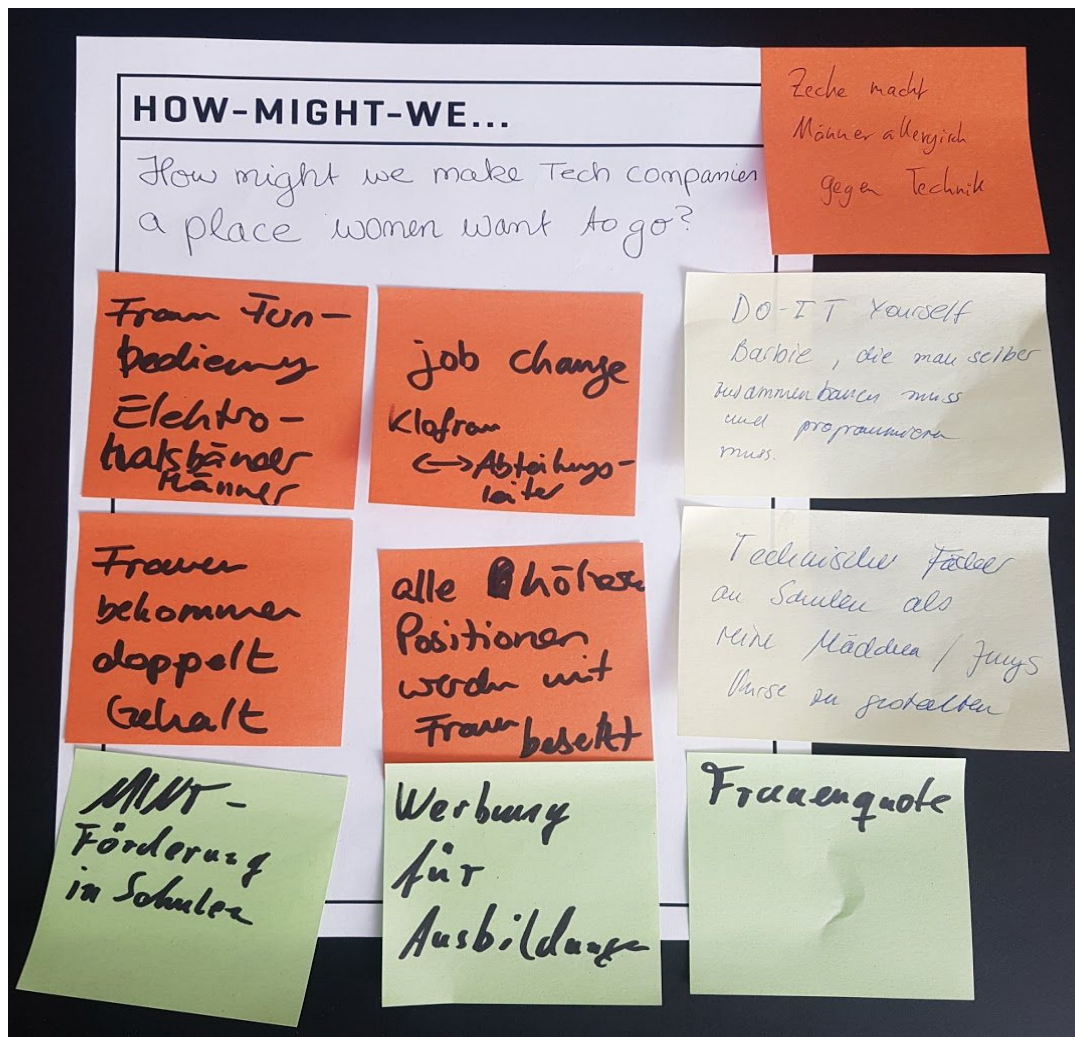 HOW-MIGHT-WE...
How might we make Tech companies
a place women want to go?
Zeche macht
Männer allergisch
gegen Technik
Frauen Fern-
bedienung
Elektro-
halsbänder
Männer
job change
Klofrau
<-> Abteilungs-
leiter
Do-IT Yourself
Barbie, die man selber
zusammenbauen muss
und programmieren
muss.
Frauen
bekommen
doppelt
Gehalt
alle höheren
Positionen
werden mit
Frauen besetzt
Technische Fächer
an Schulen als
reine Mädchen / Jungs
Kurse zu gestalten
MINT-
Förderung
in Schulen
Werbung
für
Ausbildungen
Frauenquote